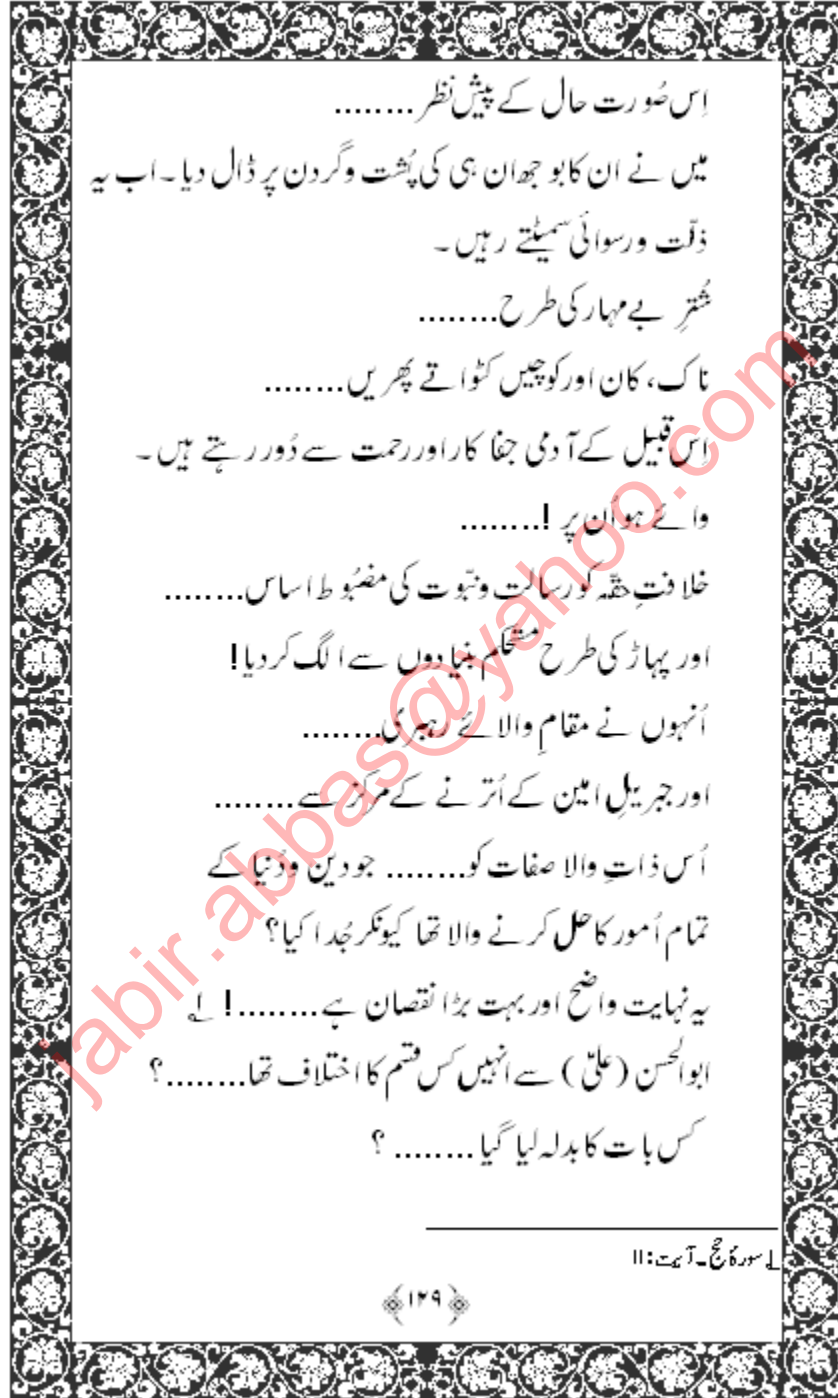 اِس صُورت حال کے پیشِ نظر ........
میں نے ان کابوجھ ان ہی کی پُشت وگردن پر ڈال دیا۔اب یہ
ذلّت ورسوائی سمیٹتے رہیں۔
شُترِ بے مہار کی طرح ........
ناک، کان اور کوچیں کٹواتے پھریں ........
اِس قبیل کے آدمی جفا کار اور رحمت سے دُور رہتے ہیں۔
وائے ہو اُن پر !........
خلافتِ حقّہ کو رسالت ونبّوت کی مضبُوط اساس ........
اور پہاڑ کی طرح مستحکم بنیادوں سے الگ کردیا!
اُنہوں نے مقامِ والائے رہبری ........
اور جبریلِ امین کے اُترنے کے مرکز سے ........
اُس ذاتِ والا صفات کو ........ جو دین ودُنیا کے
تمام اُمور کا حل کرنے والا تھا کیونکر جُدا کیا؟
یہ نہایت واضح اور بہت بڑا نقصان ہے ........! ۱؎
ابوالحسن (علیؑ) سے انہیں کس قسم کا اختلاف تھا ........؟
کس بات کا بدلہ لیا گیا ........ ؟
۱؎ سورۂ حج۔آیت:۱۱
﴿۱۲۹﴾
jabir.abbas@yahoo.com